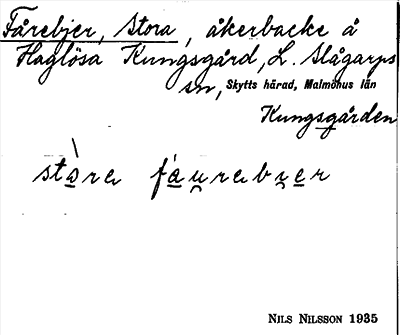 Fårebjer, Stora, åkerbacke å
Haglösa Kungsgård, L. Slågarps
sn, Skytts härad, Malmöhus län
Kungsgården
stàra fa̱u̯rabi̯e̱r
NILS NILSSON 1935